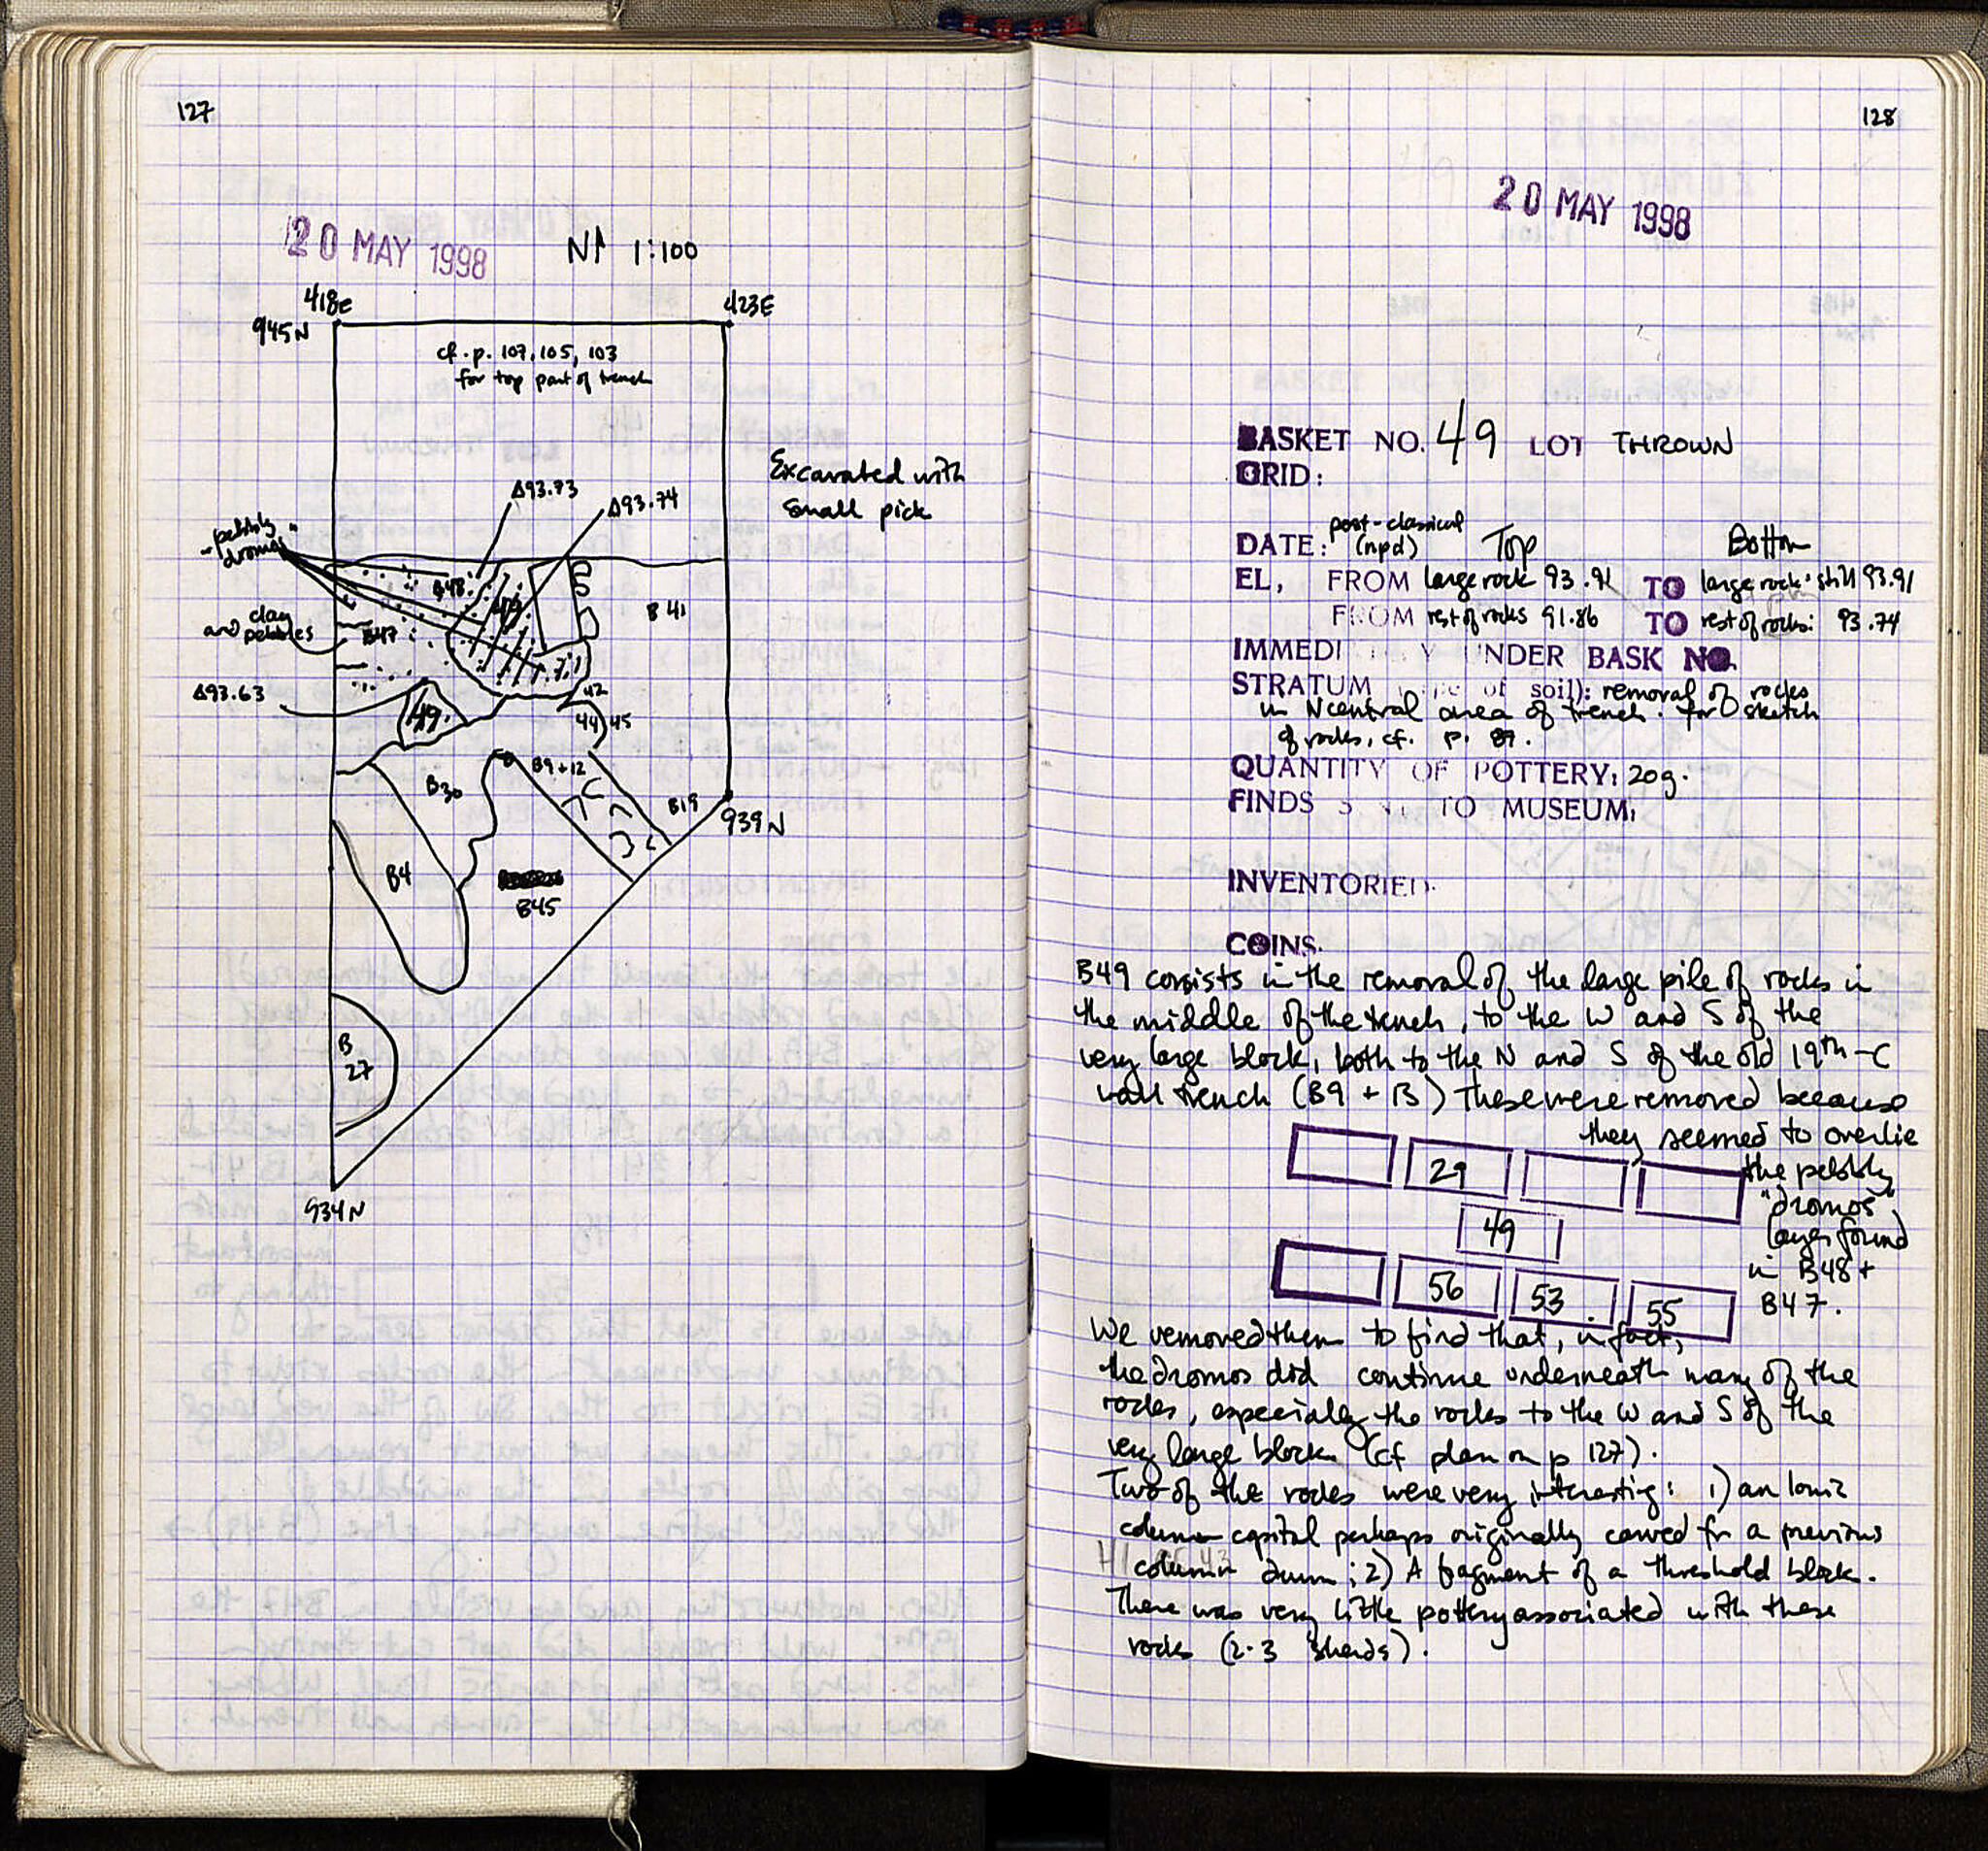 127
20 MAY 1998 N 1:100
418E 423E
945N
cf. p. 107, 105, 103
for top part of trench
Excavated with
small pick
Δ93.73
Δ93.74
"pebbly
dromos"
B48
49
B41
clay
and pebbles
B47
Δ93.63
49
42
44 45
B30
B9+12
B19
939N
B4
B45
B
27
934N
128
20 MAY 1998
BASKET NO. 49 LOT THROWN
GRID:
DATE: post-classical (npd) Top Bottom
EL, FROM large rock 93.91 TO large rock: still 93.91
FROM rest of rocks 91.86 TO rest of rocks: 93.74
IMMEDI Y UNDER BASK NO.
STRATUM of soil): removal of rocks
in N central area of trench. for sketch
of rocks, cf. p. 87.
QUANTITY OF POTTERY: 20g.
FINDS TO MUSEUM:
INVENTORIED.
COINS.
B49 consists in the removal of the large pile of rocks in
the middle of the trench, to the W and S of the
very large block, both to the N and S of the old 19th-C
wall trench (B9 + 13) These were removed because
they seemed to overlie
the pebbly
"dromos"
layer found
in B48 +
B47.
29
49
56 53 55
We removed them to find that, in fact,
the dromos did continue underneath many of the
rocks, especially the rocks to the W and S of the
very large block (cf plan on p 127).
Two of the rocks were very interesting: 1) an Ionic
column capital perhaps originally carved fr a previous
column drum; 2) A fragment of a threshold block.
There was very little pottery associated with these
rocks (2-3 sherds).